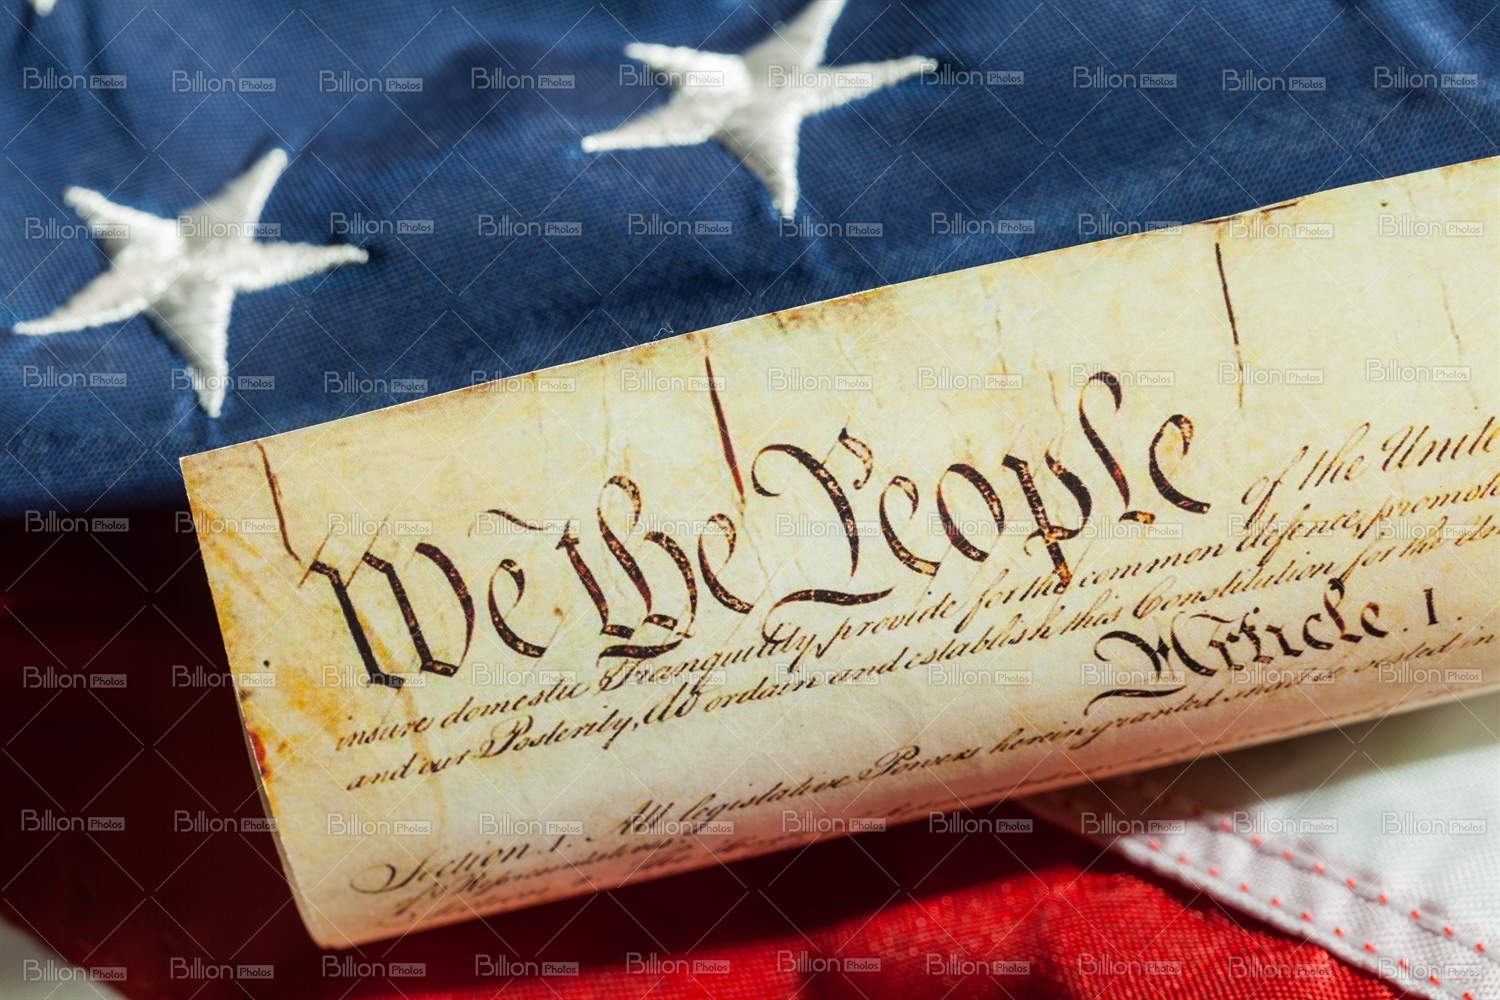 We the People of the Unite
insure domestic Tranquility, provide for the common defence, promote
and our Posterity, do ordain and establish this Constitution for the Un
Article I.
Section. 1. All legislative Powers herein granted shall be vested in
of Representatives.
Billion Photos